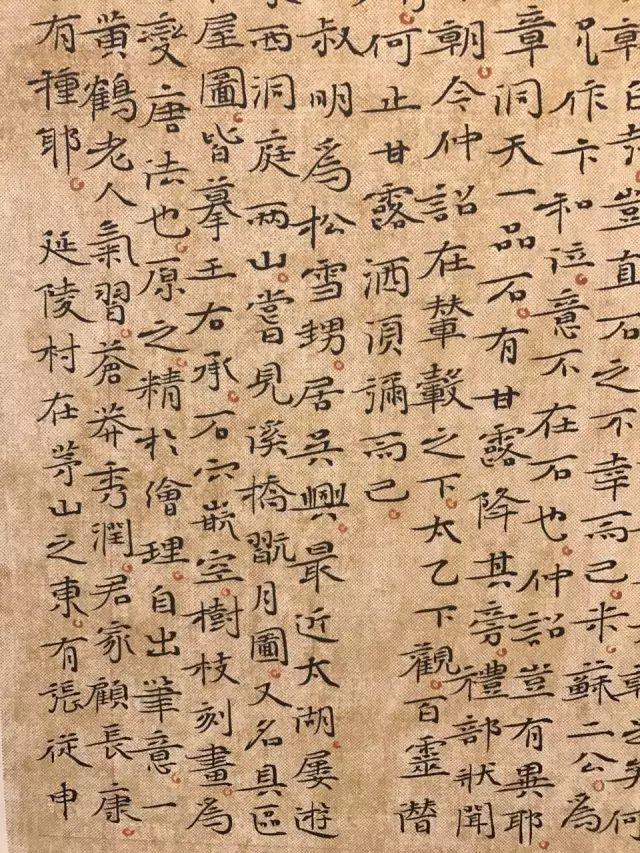 幸豈直石之不幸而已米蘇二公為
作卞和泣意不在石也仲詔豈有異耶
章洞天一品石有甘露降其旁禮部狀聞
朝今仲詔在輦轂之下太乙下觀百靈
何止甘露洒須彌而已
叔明為松雪甥居吳興最近太湖屢遊
西洞庭兩山嘗見溪橋翫月圖又名具區
屋圖皆摹王右承石穴嵌空樹枝刻畫為
變唐法也原之精於繪理自出筆意一
黃鶴老人氣習蒼莽秀潤君家顧長康
有種耶 延陵村在茅山之東有張從申